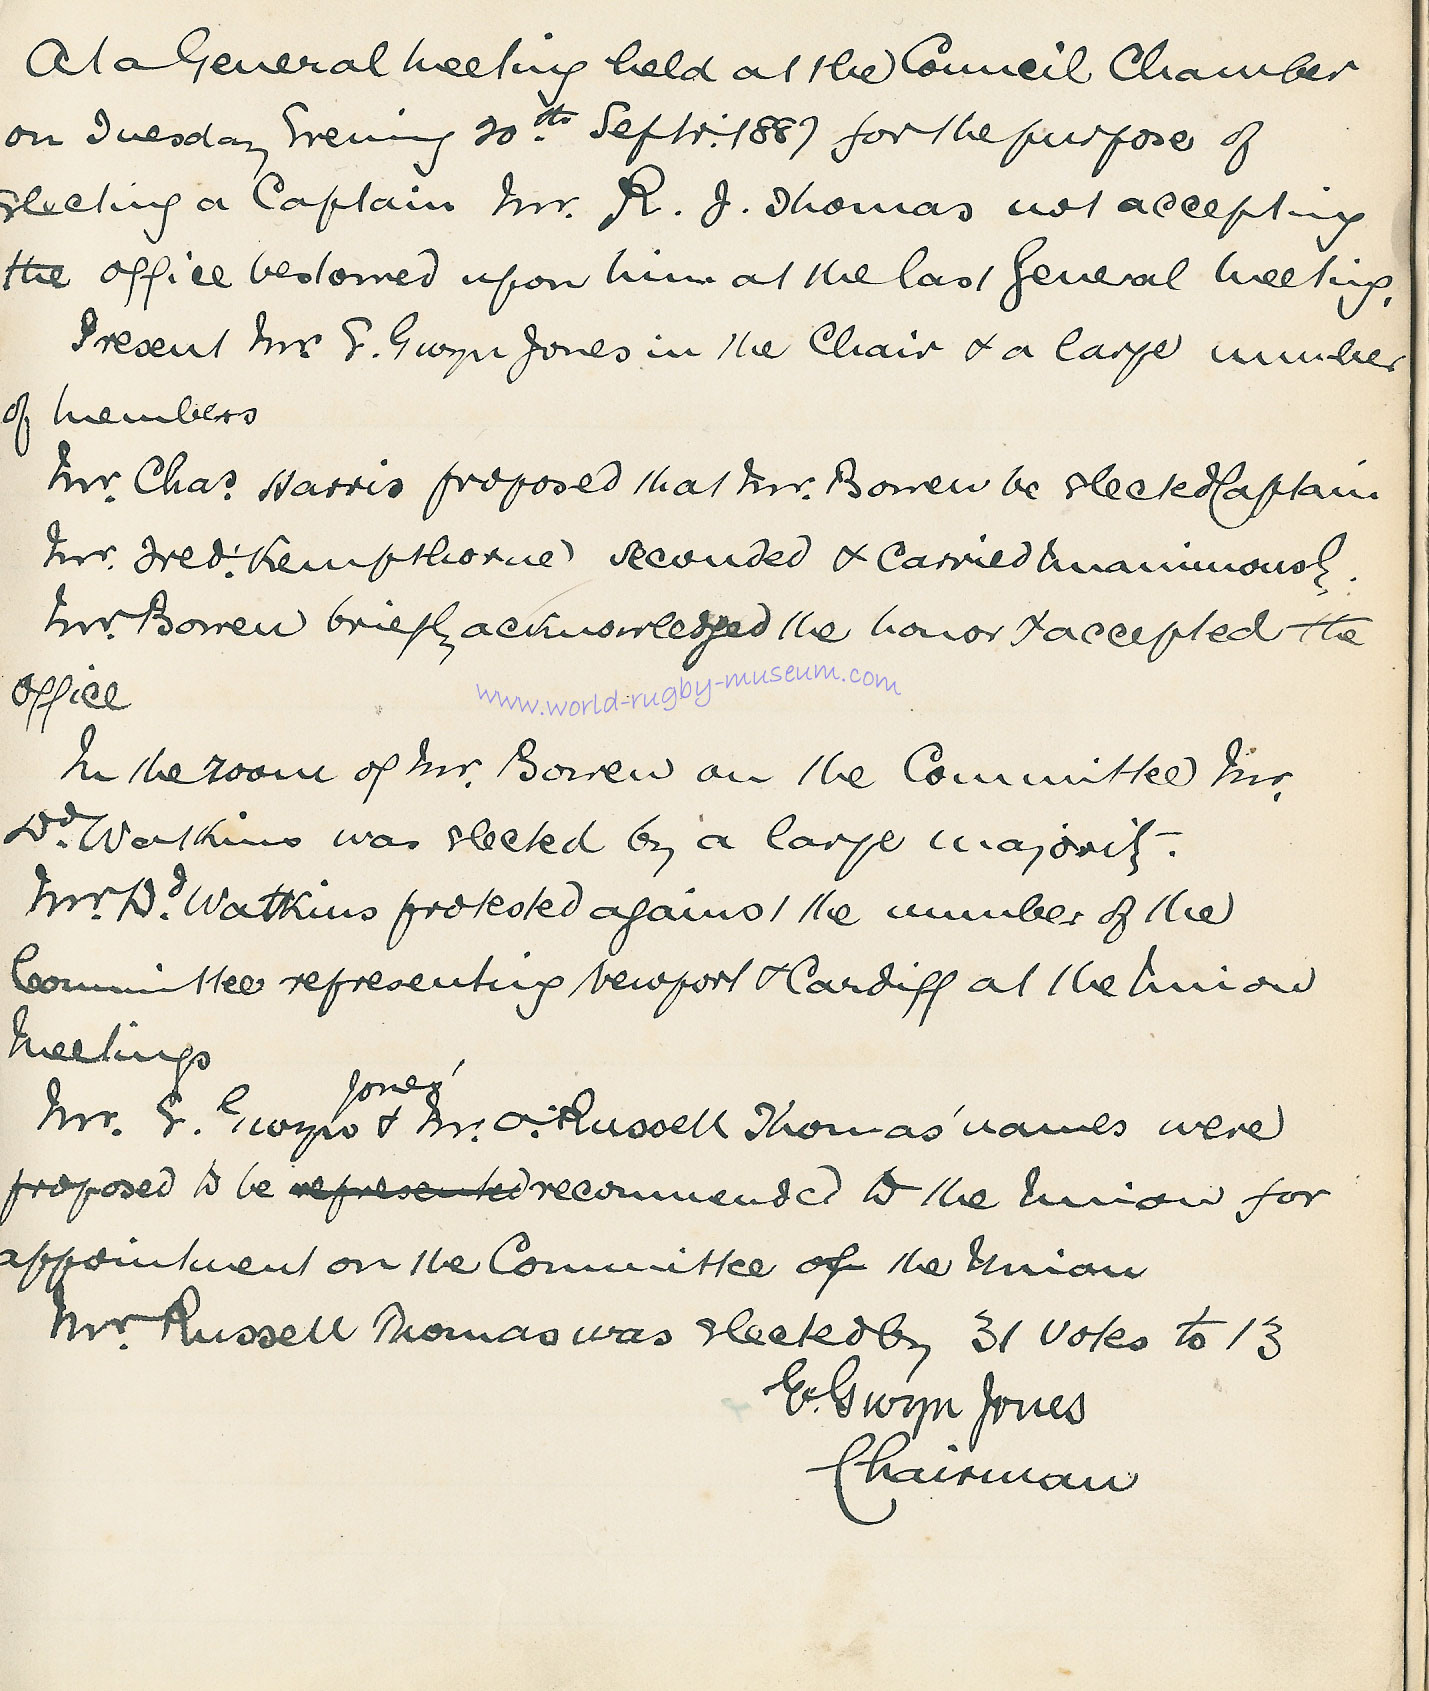 At a General Meeting held at the Council Chamber
on Tuesday Evening 20th Septr. 1887 for the purpose of
electing a Captain Mr. R. J. Thomas not accepting
the office bestowed upon him at the last General Meeting,
Present Mr E. Gwyn Jones in the Chair & a large number
of Members
Mr. Chas. Harris proposed that Mr. Bowen be elected Captain
Mr. Fred. Kempthorne seconded & Carried Unanimously.
Mr. Bowen briefly acknowledged the honor & accepted the
office
www.world-rugby-museum.com
In the room of Mr. Bowen on the Committee Mr.
Dd. Watkins was elected by a large majority.
Mr. Dd. Watkins protested against the number of the
Committee representing Newport & Cardiff at the Union
Meetings
Jones'
Mr. E. Gwyn & Mr. Russell Thomas' names were
proposed to be represented recommended to the Union for
appointment on the Committee of the Union
Mr. Russell Thomas was elected by 31 Votes to 13
E. Gwyn Jones
Chairman